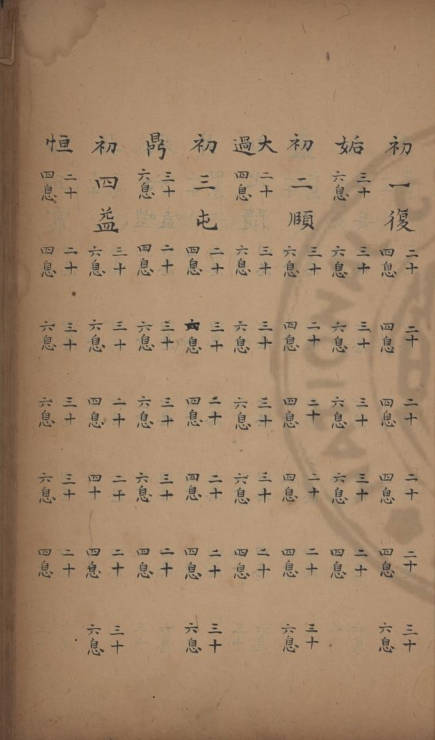 初一復二十四息二十四息二十四息二十四息二十四息三十六息
姤三十六息三十六息三十六息三十六息三十六息二十四息
初二頤三十六息二十四息二十四息二十四息二十四息三十六息
大過二十四息三十六息三十六息三十六息三十六息二十四息
初三屯二十四息三十六息二十四息二十四息二十四息三十六息
鼎三十六息二十四息三十六息三十六息三十六息二十四息
初四益三十六息三十六息二十四息二十四十二十四息三十六息
恒二十四息二十四息三十六息三十六息三十六息二十四息